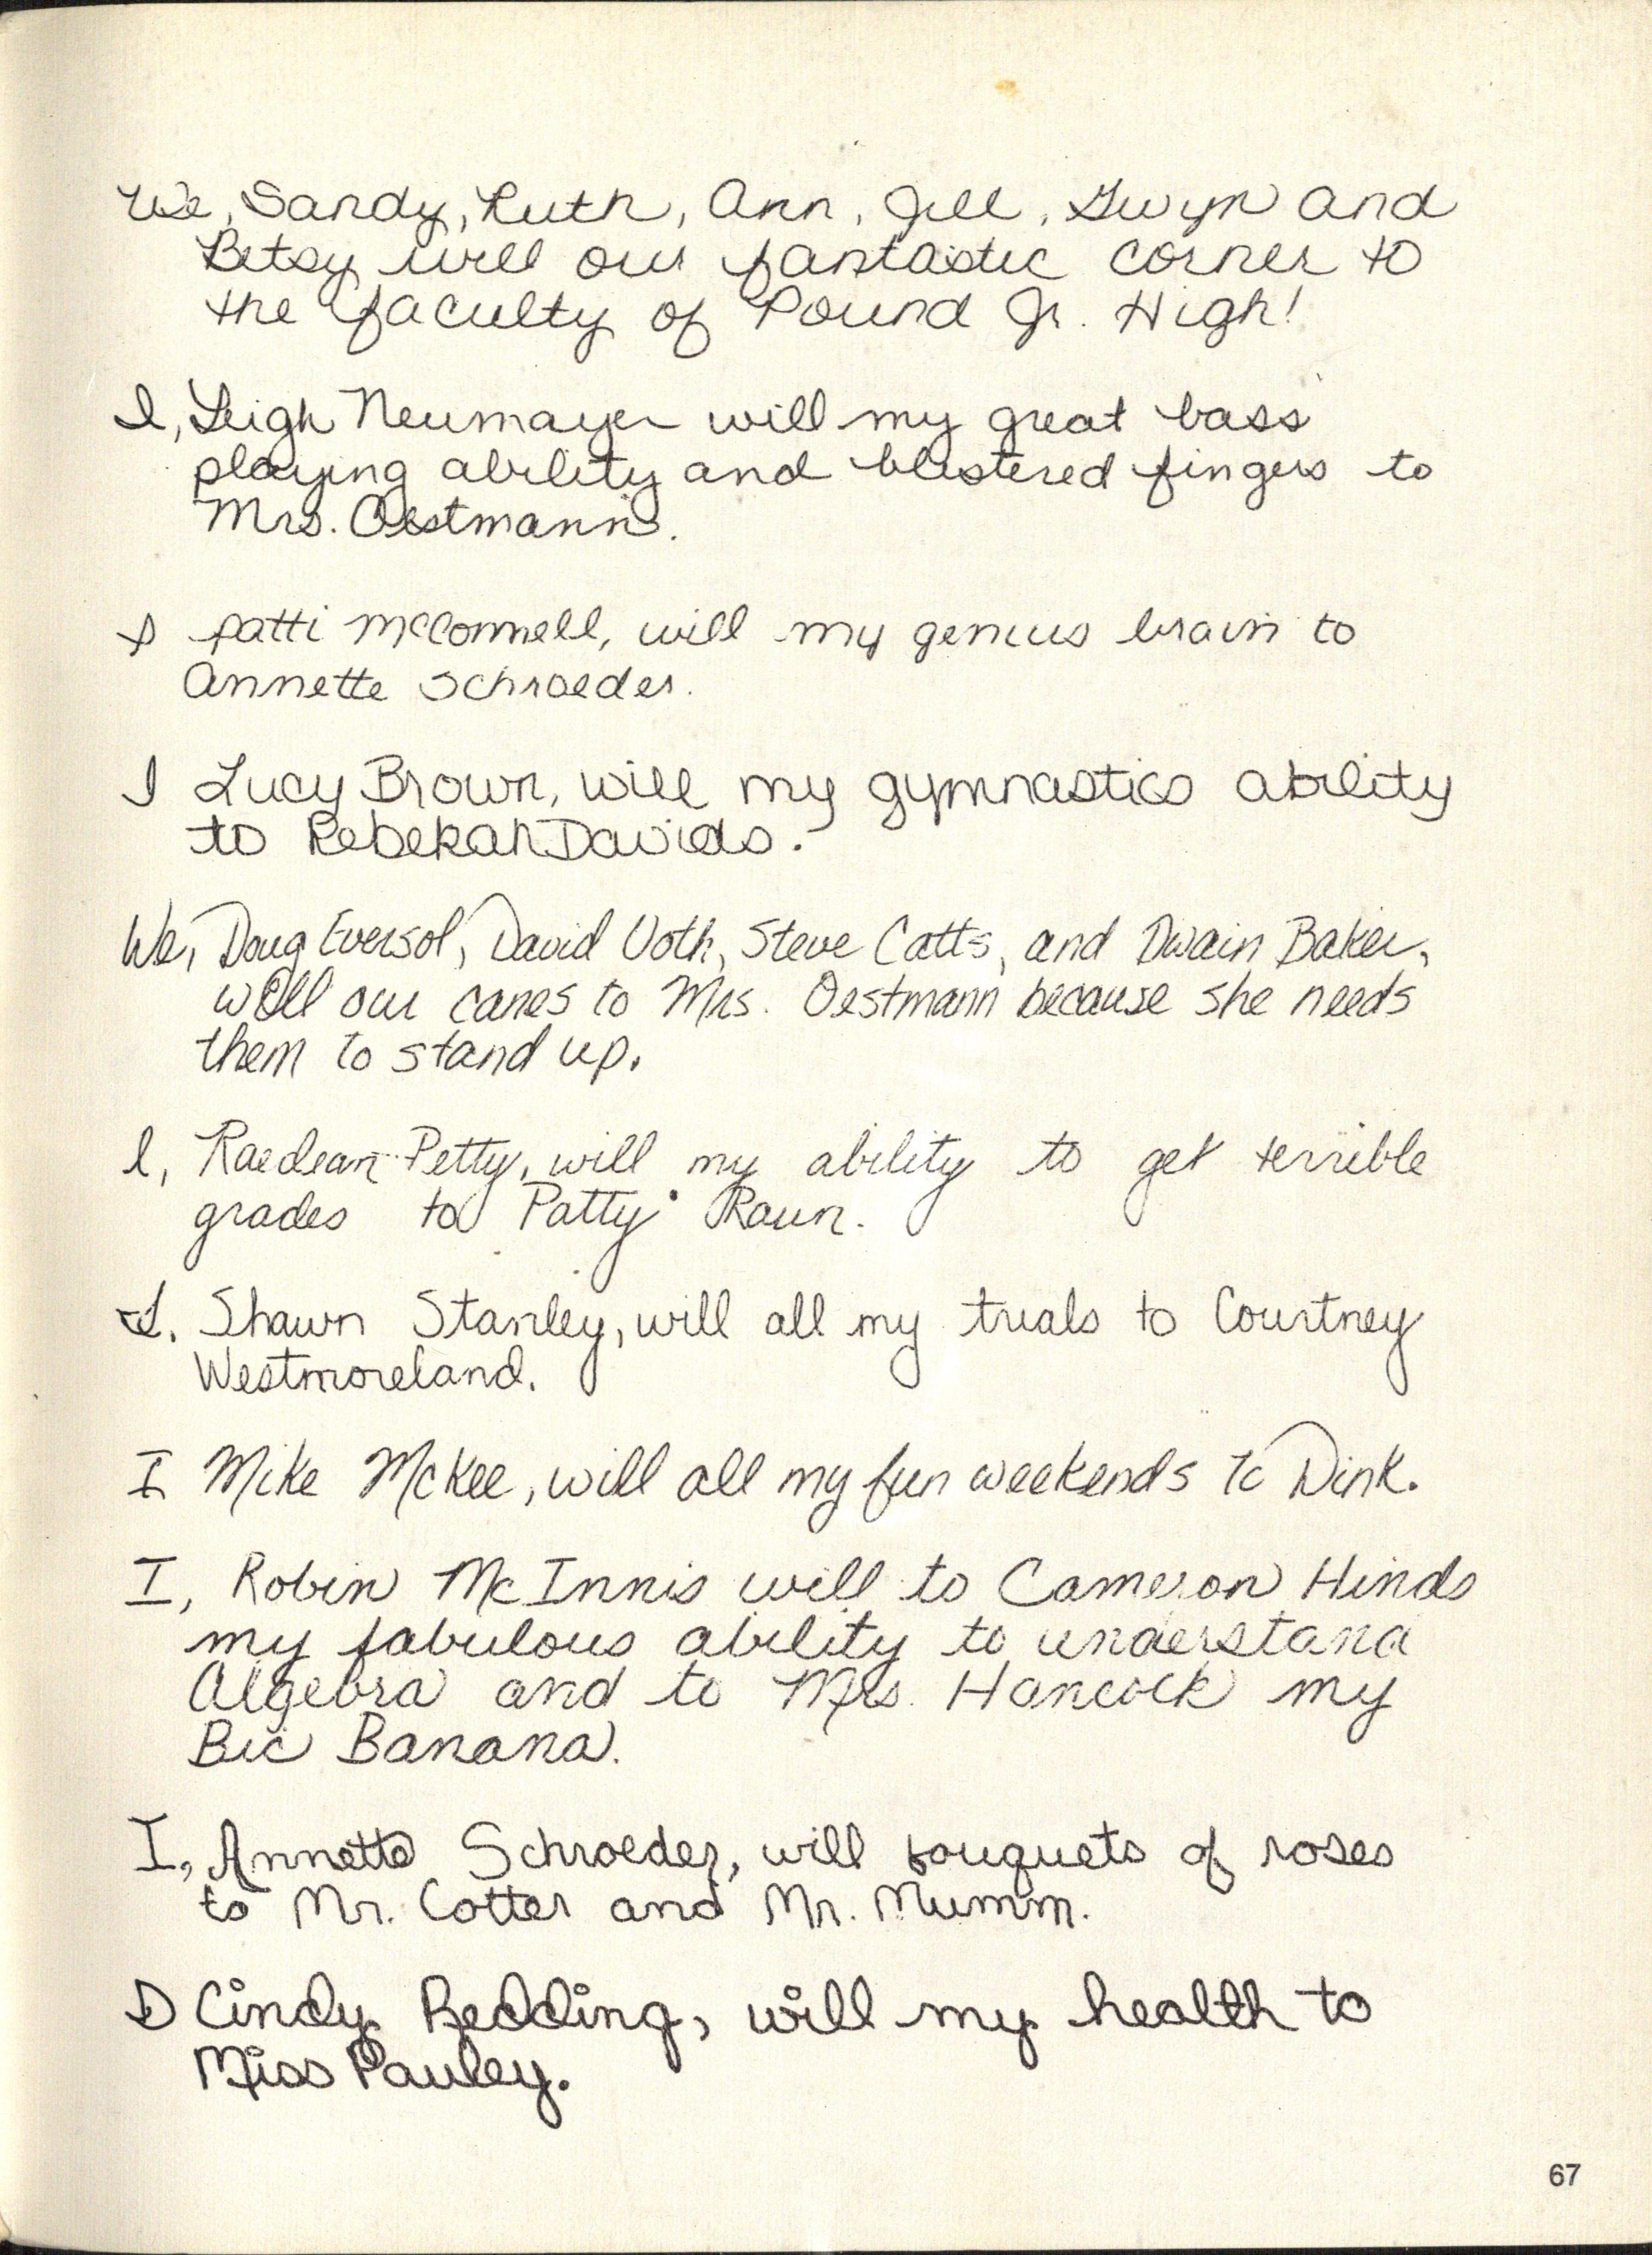 We, Sandy, Ruth, Ann, Jill, Gwyn and
Betsy will our fantastic corner to
the faculty of Pound Jr. High!
I, Leigh Neumayer will my great bass
playing ability and blistered fingers to
Mrs. Oestmann.
I patti McConnell, will my genius brain to
Annette Schroeder.
I Lucy Brown, will my gymnastics ability
to Rebekah Davids.
We, Doug Eversol, David Voth, Steve Catts, and Dwain Baker,
will our canes to Mrs. Oestmann because she needs
them to stand up.
I, Raedean Petty, will my ability to get terrible
grades to Patty Raun.
I. Shawn Stanley, will all my trials to Courtney
Westmoreland.
I Mike McKee, will all my fun weekends to Dink.
I, Robin McInnis will to Cameron Hinds
my fabulous ability to understand
Algebra and to Mrs. Hancock my
Bic Banana.
I, Annette Schroeder, will bouquets of roses
to Mr. Cotter and Mr. Mumm.
I Cindy Redding, will my health to
Miss Pauley.
67